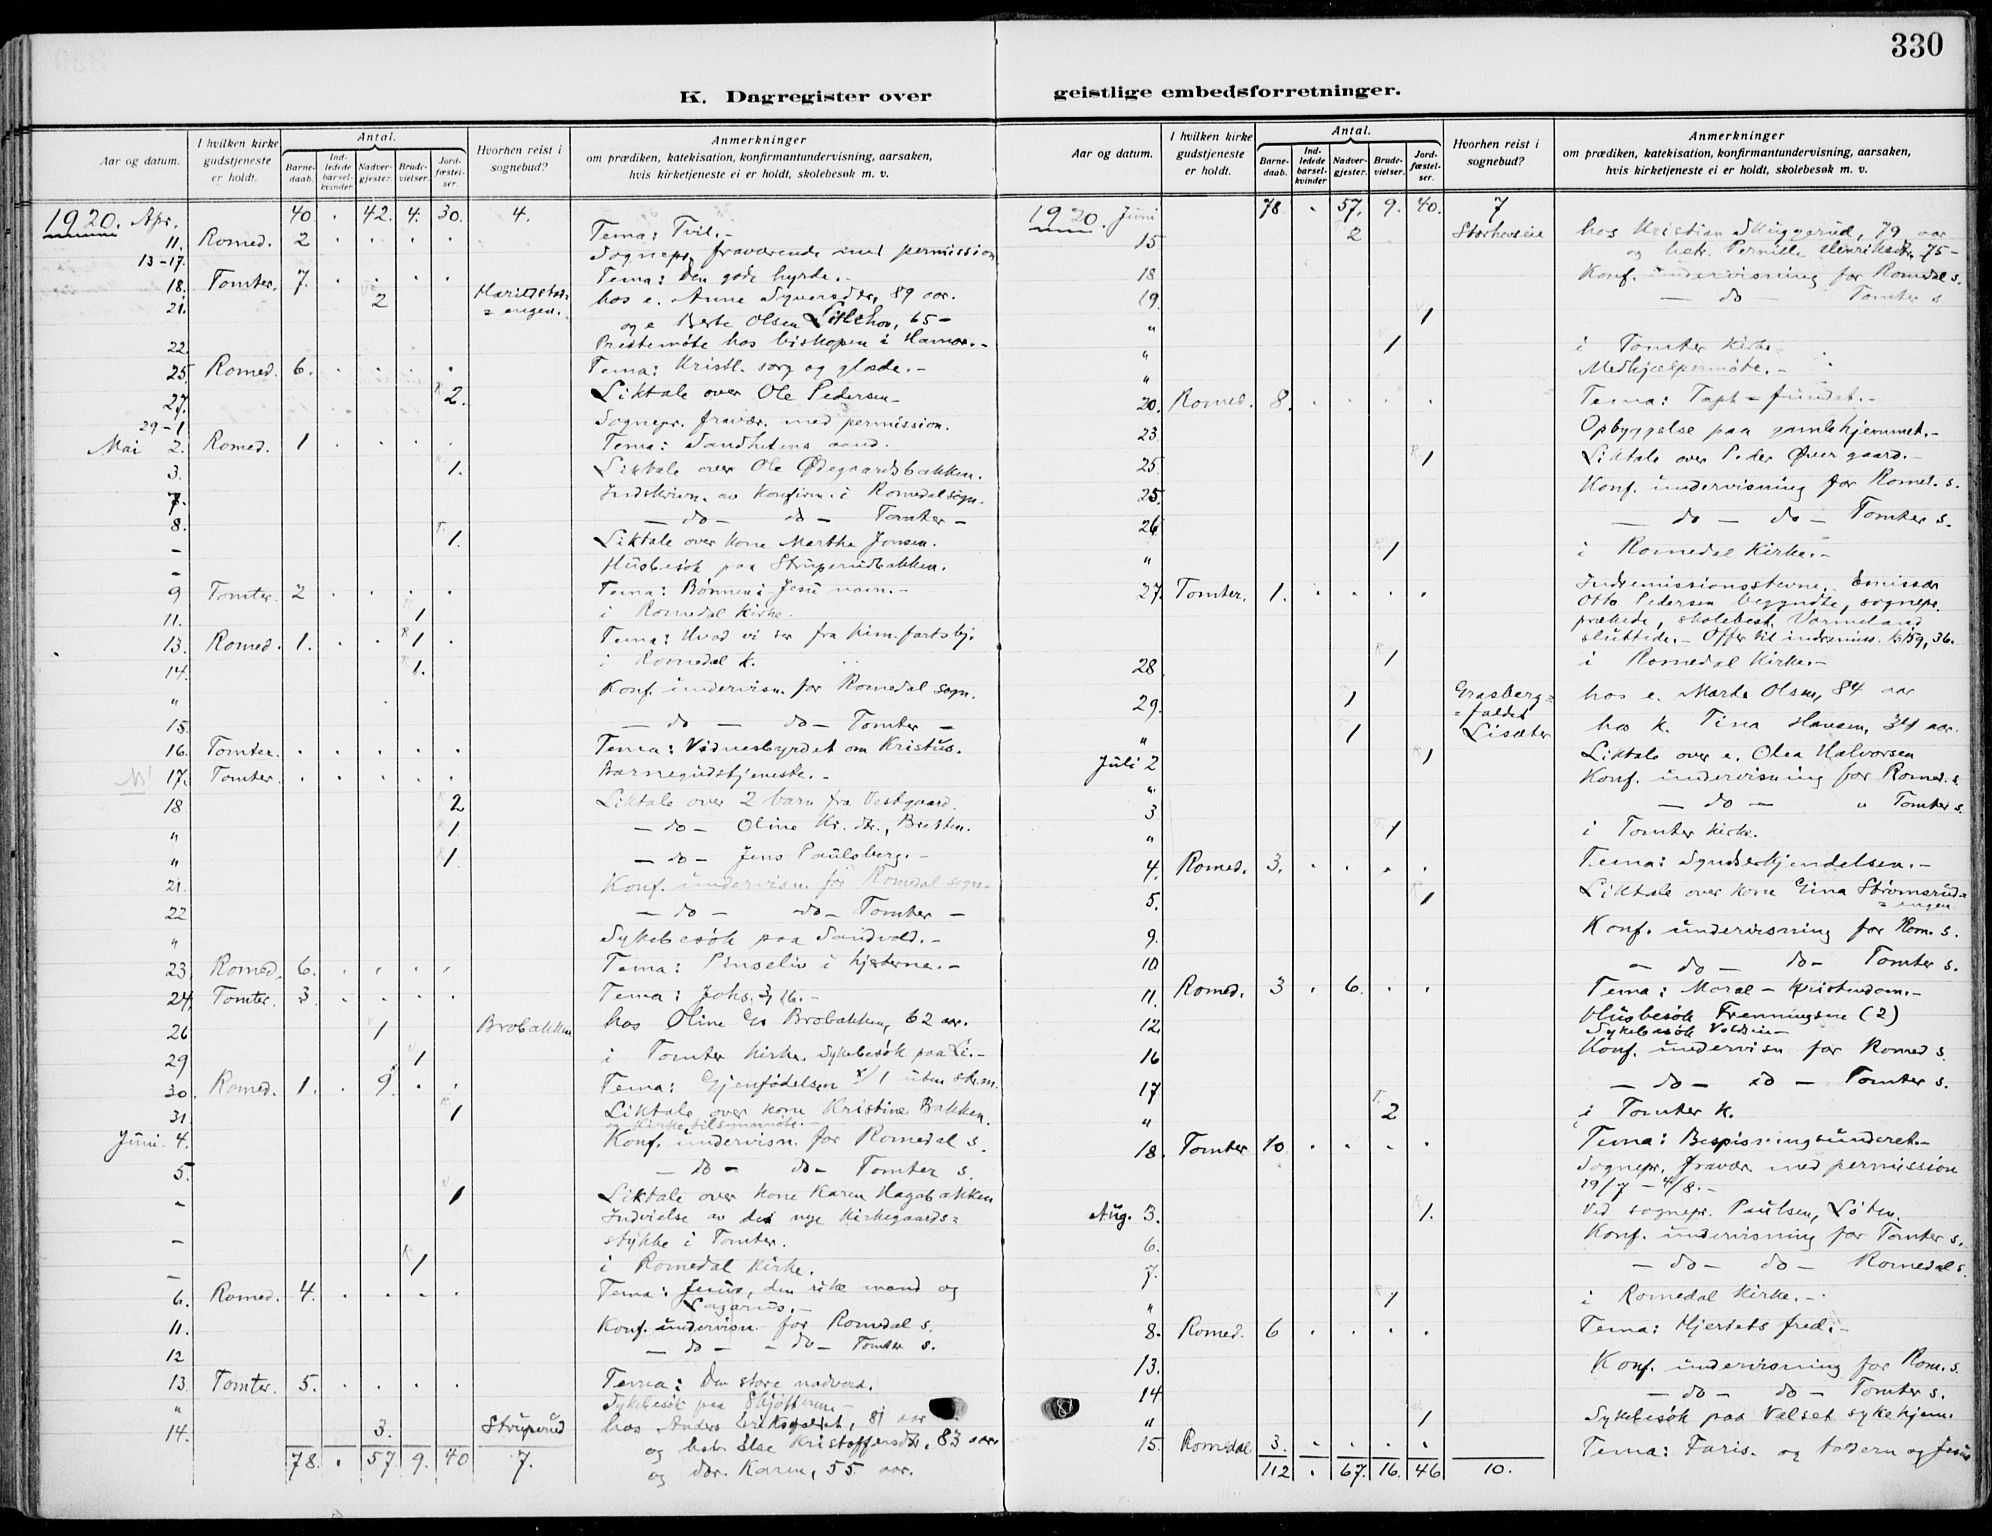 330
K. Dagregister over geistlige embedsforretninger.
Aar og datum. I hvilken kirke gudstjeneste er holdt. Antal. Barnedaab. Indledede barselkvinder Nadvergjester. Brudevielser. Jordfæstelser. Hvorhen reist i sognebud? Anmerkninger om prædiken, katekisation, konfirmantundervisning, aarsaken, hvis kirketjeneste ei er holdt, skolebesøk m. v.
1920. Apr. 40 . 42. 4. 30. 4.
11. Romed. 2 . . . . Tema: Tvil.-
13-17. Sognepr. fraværende med permission
18. Tomter. 7. . . . . Tema: Den gode hyrde.-
21. 2 hos e. Anne Syversdtr., 89 aar.
og e Berte Olsen 65-
22. Prestemøte hos biskopen i Hamar.-
25. Romed. 6. . . . . Tema: Kristl. sorg og glæde.-
27. 2. Liktale over Ole Pedersen-
29-1 Sognepr. fravær. med permission.
Mai 2. Romed. 1 . . . . Tema: Sandhetens aand.
3. 1. Liktale over Ole Ødegaardsbakken.
7. Indskrivn. av Konfirm. i Romedal sogn.
8. - do - do - Tomter -
- 1. Liktale over kone Marthe Jonsen.
- Husbesøk paa Struperudbakken.
9 Tomter. 2 . . . . Tema: Bønnen i Jesu navn.-
11. 1 i Romedal Kirke.
13. Romed. 1. . . 1 . Tema: Hvad vi ser fra himmfartsbj.
14. 1. i Romedal k.
" Konf. undervisn. for Romedal sogn.
15. - do - do - Tomter -
16. Tomter. . . . . . Tema: Vidnesbyrdet om Kristus.
17. Tomter. . . . . . Barnegudstjeneste.-
18 2 Liktale over 2 barn fra Vestgaard.
" 1. - do - Oline Kr. dtr., Bratten.
" 1. - do - Jens Paulsberg.-
21. Konf. undervisn. for Romedal sogn.
22 - do - do - Tomter -
" Sykebesøk paa Sandvold.-
23 Romed. 6. . . . . Tema: Pinseliv i hjerterne.-
24. Tomter. 3. . . . . Tema: Johs. 3, 16.-
26 1 Brobakken hos Oline Brobakken, 62 aar.
29 1 i Tomter Kirke. Sykebesøk paa Li.-
30. Romed. 1. . 9. . . Tema: Gjenfødelsen 1 uten
31. 1 Liktale over kone Kristine Bakken.
og Kirketilsynsmøte.-
Juni 4. Konf. undervisn. for Romedal s.
5. - do - do - Tomter s.
- 1 Liktale over kone Karen Hagabakken
Indvielse av det nye Kirkegaards=
- stykke i Tomter.
- 1 i Romedal Kirke.
6. Romed. 4. . . . . Tema: Jesus, den rike mand og
Lazarus.-
11. Konf. undervisn. for Romedal s.
12 - do - - do - Tomter s.
13. Tomter. 5. . . . . Tema: Den store nadverd.
" Sykebesøk paa
14. 3. Struperud hos Anders 81 aar
og hstr. Else Kristoffersdtr. 83 aar
78. . 57. 9. 40 7. og dtr. Karen, 55 aar.
Aar og datum. I hvilken kirke gudstjeneste er holdt. Antal. Barnedaab. Indledede barselkvinder Nadvergjester. Brudevielser. Jordfæstelser. Hvorhen reist i sognebud? Anmerkninger om prædiken, katekisation, konfirmantundervisning, aarsaken, hvis kirketjeneste ei er holdt, skolebesøk m. v.
1920. Juni 78. . 57. 9. 40. 7
15 2 Storhovseie hos Kristian Skuggerud, 79 aar
og hstr. Pernille Henriksdtr. 75-
18 Konf. undervisning for Romedal s.
19. - do - Tomter s
" 1
" 1 i Tomter kirke.
" Medhjælpermøte.-
20. Romed. 8. . . . . Tema: Tapt - fundet.-
23. Opbyggelse paa gamlehjemmet.-
25. 1 Liktale over Peder Øvergaard.-
25. Konf. undervisning for Romed. s.
26 - do - do - Tomter s.
" 1 i Romedal Kirke.-
27. Tomter. 1. . . . . Indremissionsstevne. Emissær
Otto Pedersen begyndte, sognepr.
prækede, skolebest. Varmeland
sluttede.- Offer til indremiss. kr 159, 36.
28. 1 i Romedal Kirke.-
29. 1 Grasberg= =faldet hos e. Marte Olsen, 84 aar
" 1 Lisæter hos k. Tina Hansen, 34 aar.
Juli 2 1 Liktale over e. Olea Halvorsen
" Konf. undervisning for Romed. s.
3 - do - " Tomter s.
" 1 i Tomter kirke.
4. Romed. 3. . . . . Tema: Syndserkjendelsen.-
5. 1 Liktale over kone Gina Strømsrud=
=engen.
9. Konf. undervisning for Rom. s.
10 - do - do - Tomter s.
11. Romed. 3 . 6. . . Tema: Moral - kristendom.-
12. Husbesøk Frenningsrue (2)
Sykebesøk
16 Konf. undervisn for Romed s.
17 - do - do - Tomter s.
" 2 i Tomter k.
18. Tomter 10 . . . . Tema: Bespisningsunderet.-
Sognepr. fravær. med permission
29/7 - 4/8.-
Aug. 3. 1. Ved sognepr. Paulsen, Løten.
6. Konf. undervisning for Tomter s.
7. - do - do - Romedal s.
" 1 i Romedal Kirke.-
8. Romed. 6 . . . . Tema: Hjertets fred.-
13. Konf. undervisning for Rom. s.
14 - do - do - Tomter s.
" 1 Sykebesøk paa Velset sykehjem.
15. Romedal 3. . . . . Tema: Faris. og tolderen og Jesus
112 . 67. 16. 46 10.